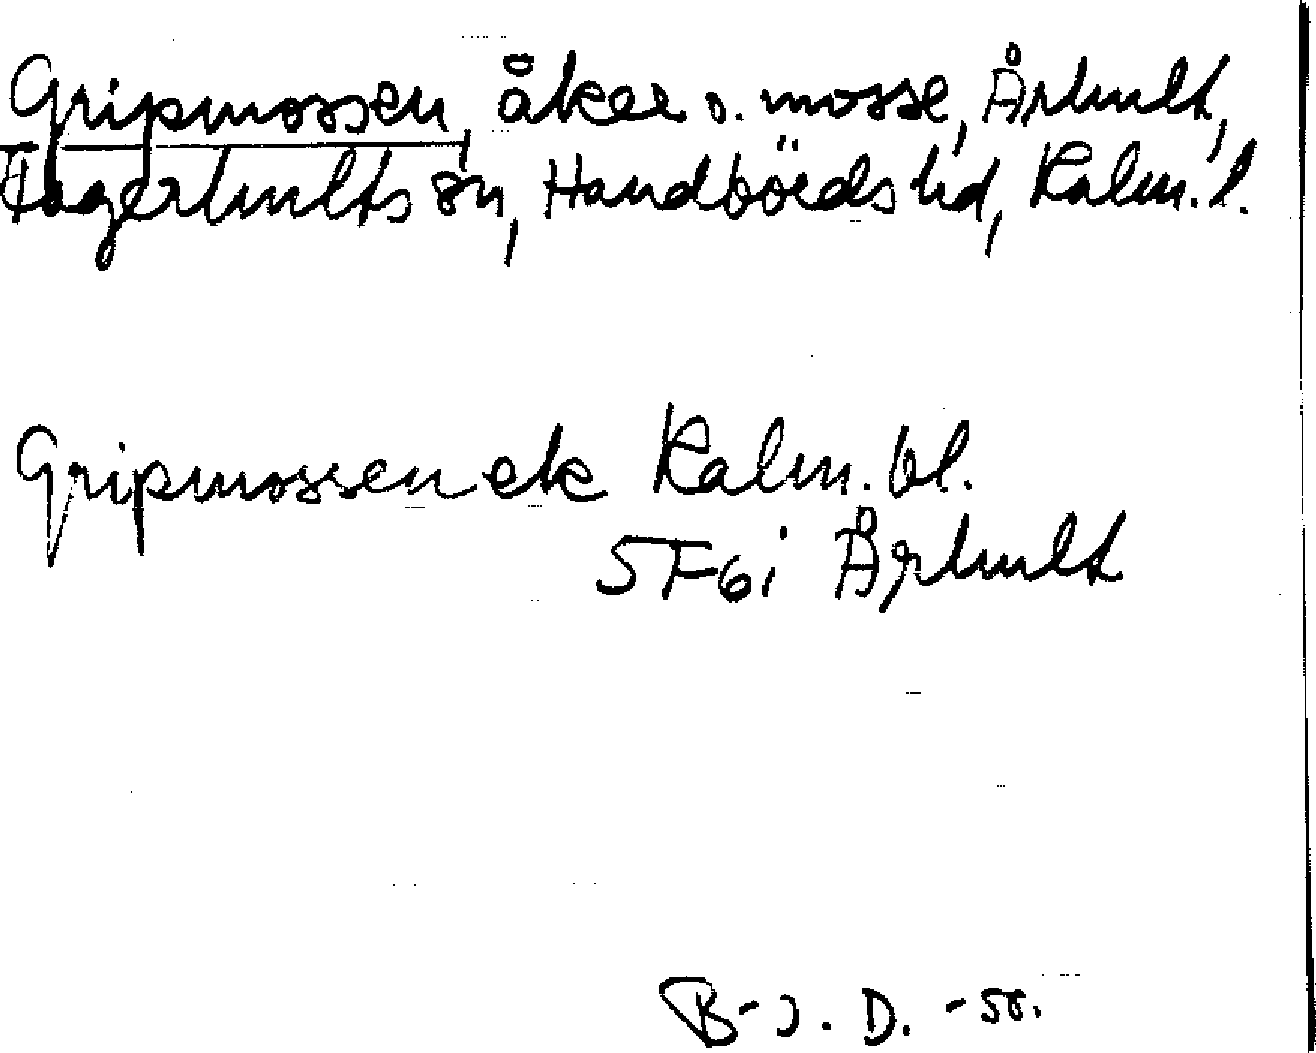 Gripmossen, åker o. mosse, Århult,
Fagerhults sn, Handbörds hd, Kalm. l.
Gripmossen ek Kalm. bl.
5F6i Århult
B-J. D. -50.